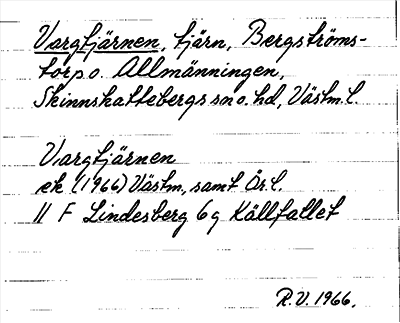 Vargtjärnen, tjärn, Bergströms-
torp o. Allmänningen,
Skinnskattebergs sn o. hd, Västm. l.
Vargtjärnen
ek (1966) Västm., samt Ör. l.
11 F Lindesberg 6g Källfallet
R.V. 1966.